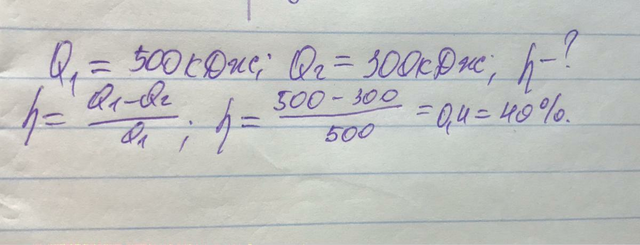 Q₁ = 500кДж; Q₂ = 300кДж; η-?
η = Q₁-Q₂/Q₁; η = 500-300/500 = 0,4 = 40%.